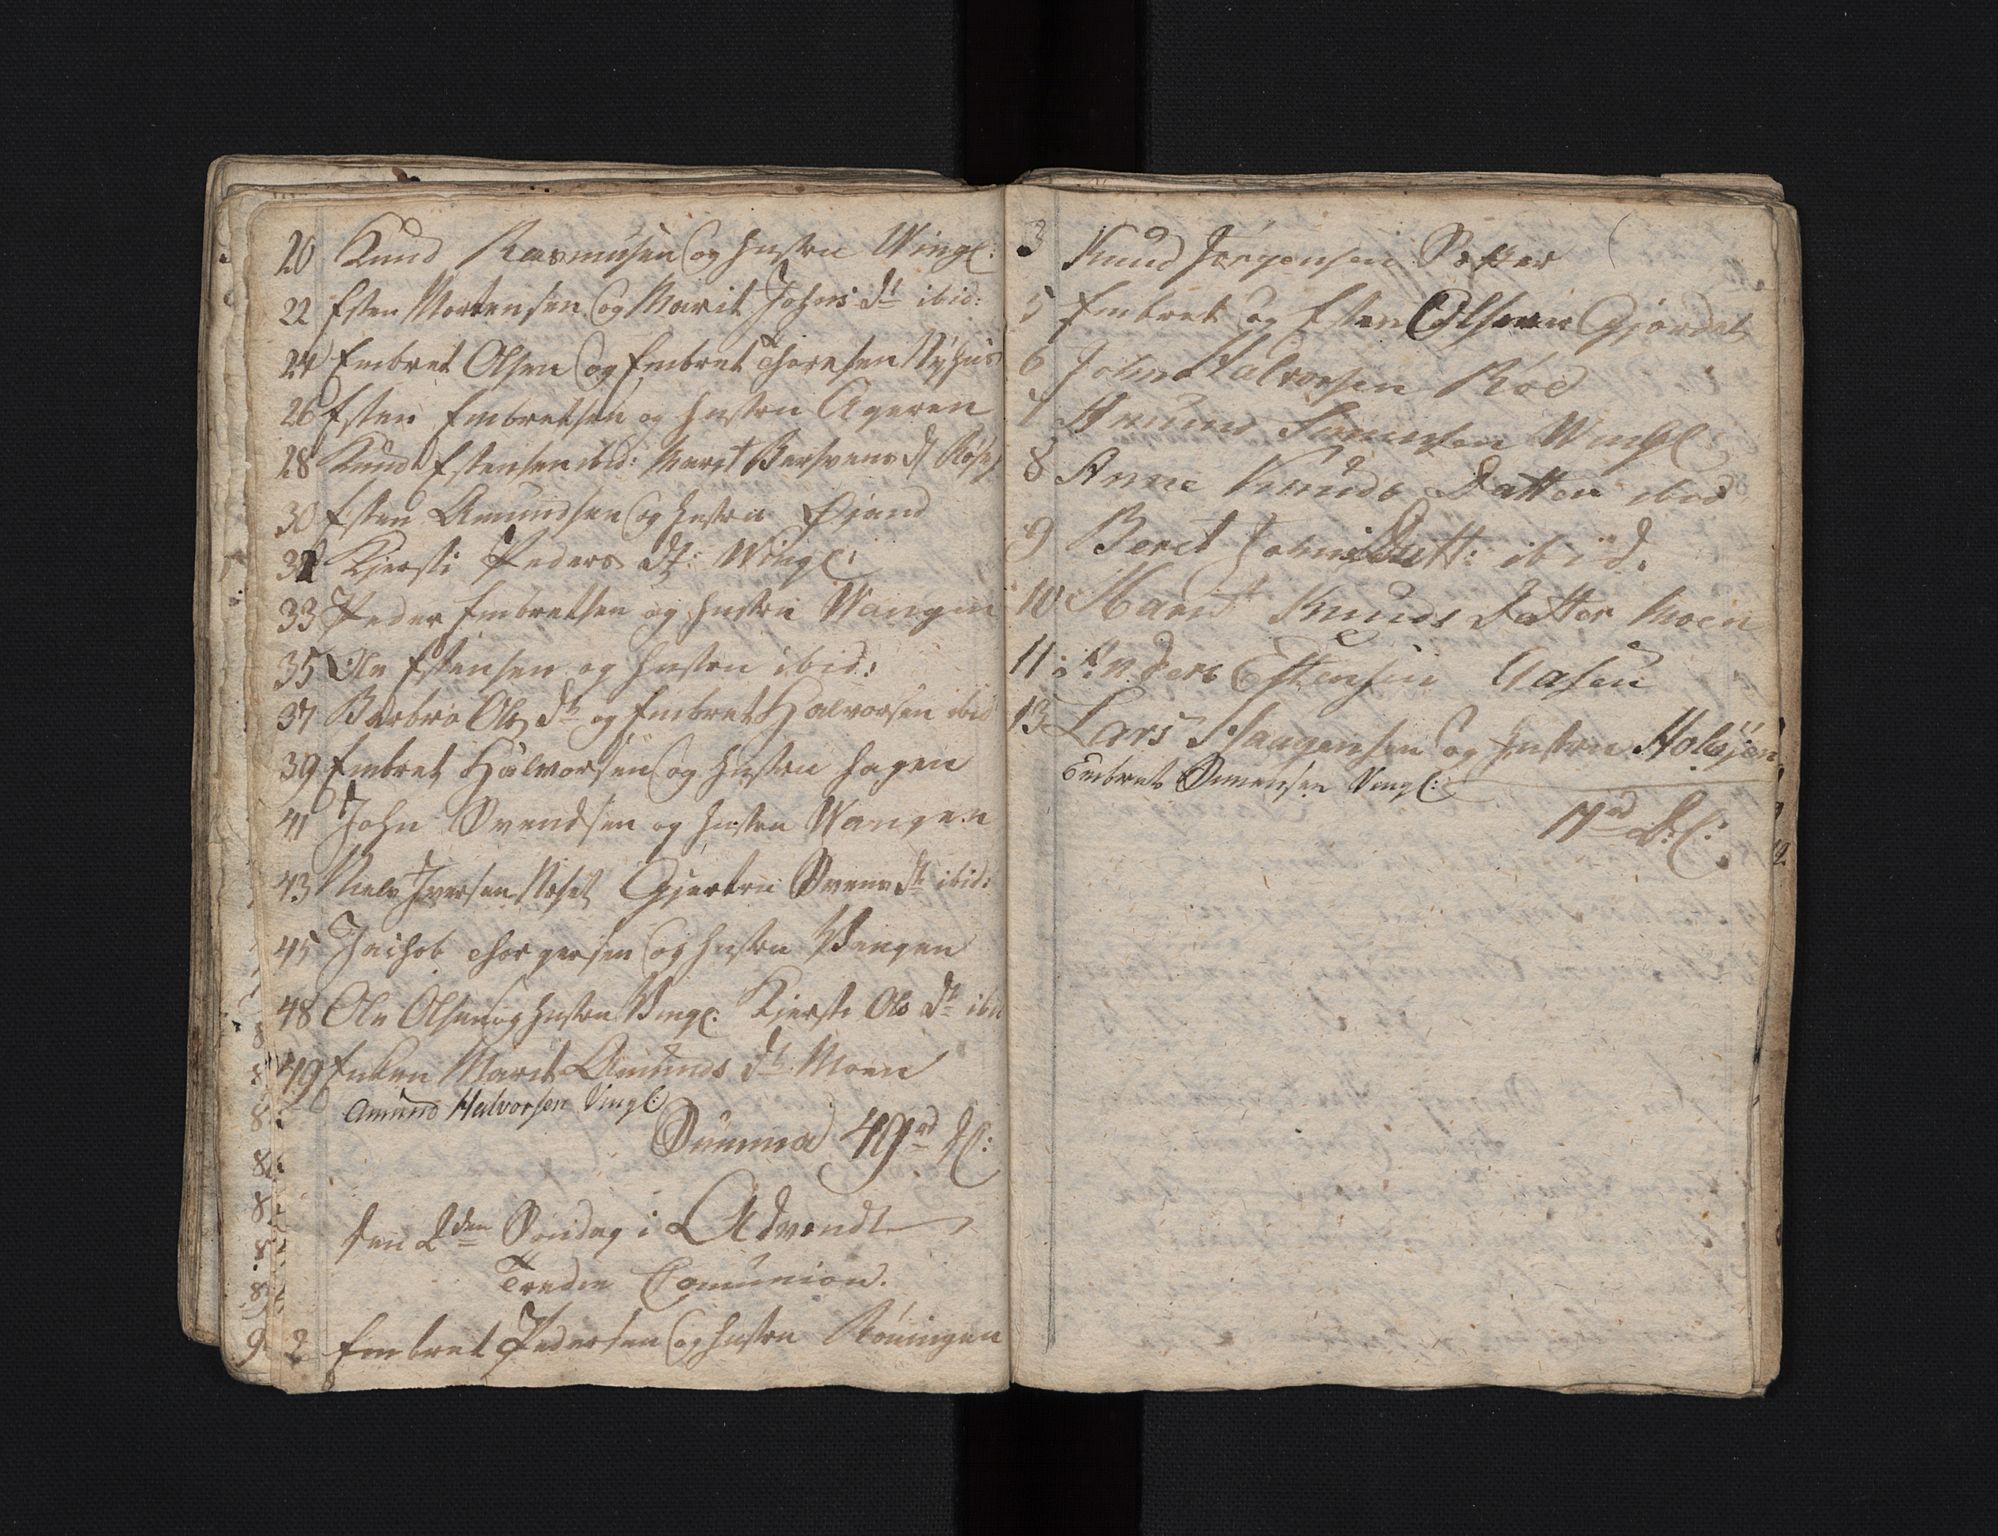 20 Knud Rasmusen og hustru Wingl:
22 Esten Mortensen og Marit Johns dt ibid:
24 Embret Olsen og Embret Thoresen Nÿhus
26 Esten Embretsen og hustru Ageren
28 Knud Estensen ibid: Marit Barsvens d
30 Esten Amundsen og hustru Øiand
31 Kjersti Peders dt: Wingl:
33 Peder Embretsen og hustru Wangen
35 Ole Estensen og hustru ibid:
37 Barbro Ols dt og Embret Halvorsen ibid
39 Embret Halvorsen og hustru hagen
41 John Svendsen og hustru Wangen
43 Niels Iversen Noset Gjertru Svens dt ibid:
45 Jachob Thorgersen og hustru Wangen
48 Ole Olsen og hustru Vingl: Kjersti Ols dt ibi
49 Enken Marit Amunds dt Moen
Amund Halvorsen Vingl:
Summa 49
den 2den Søndag i Advendt
Tredie Comunion.
2 Embret Pedersen og hustru Røningen
3 Knud Jörgensen
5 Embret og Esten Olsener Gjordet
6 John Halvorsen Röe
7 Amund Simensen Wingl
8 Anne Knuds Datter ibid
9 Beret Johns Datt: ibid.
10 Marit Knuds Datter Moen
11 Anders Estensen Aasen
13 Lars Haagensen og hustru
Embret Simensen Vingl: